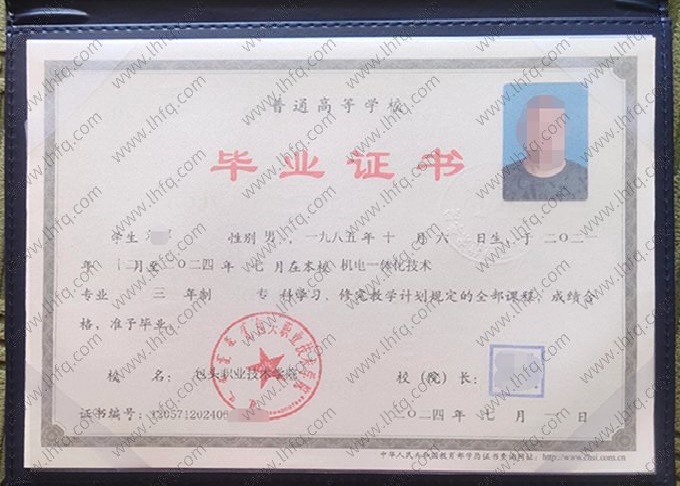 普通高等学校
毕业证书
学生 性别 男，一九八五年 十 月 六 日生，于二〇二一
年 十二月至二〇二四年 七 月在本校 机电一体化技术
专业 三 年制 专 科学习，修完教学计划规定的全部课程，成绩合
格，准予毕业。
校 名： 包头职业技术学院
校（院）长：
证书编号： 120571202406
二〇二四年 七 月 一 日
中华人民共和国教育部学历证书查询网址：http://www.chsi.com.cn
www.lhfq.com